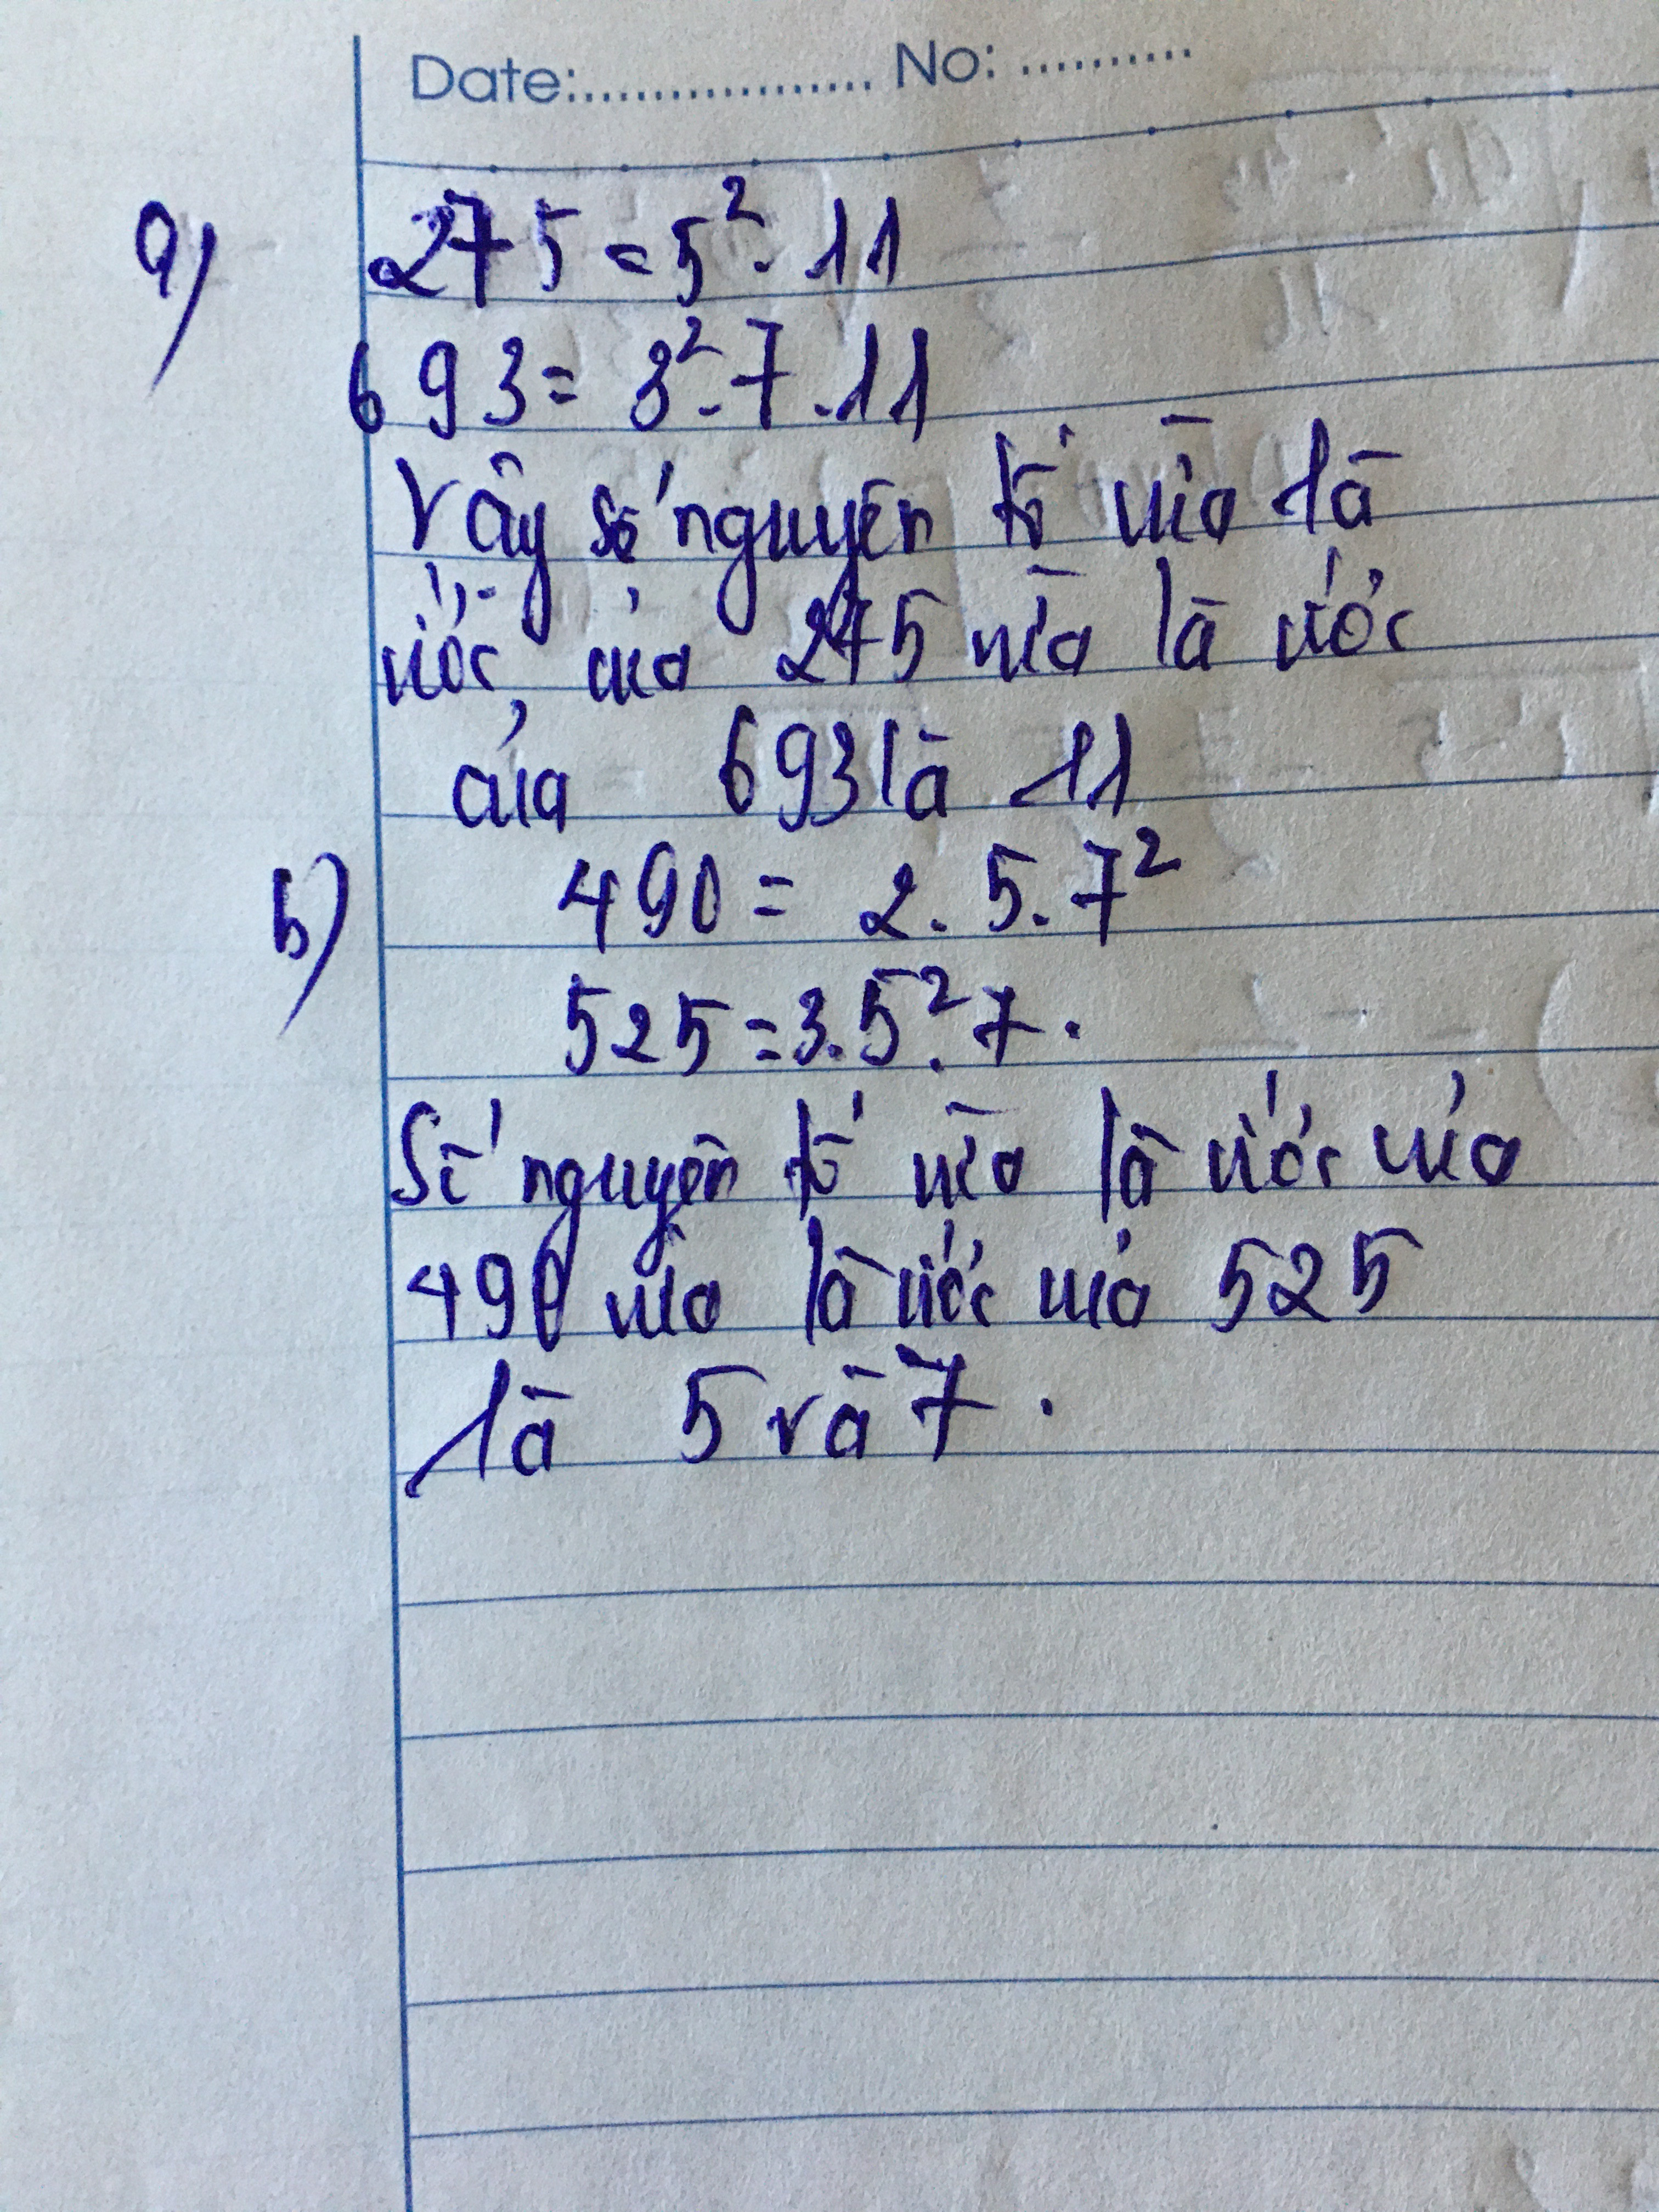 Date:.................... No: ...........
a) 275 = 5². 11
693 = 3². 7 . 11
Vậy số nguyên tố vừa là
ước của 275 vừa là ước
của 693 là 11
b) 490 = 2. 5. 7²
525 = 3. 5². 7 .
Số nguyên tố vừa là ước của
490 vừa là ước của 525
là 5 và 7 .